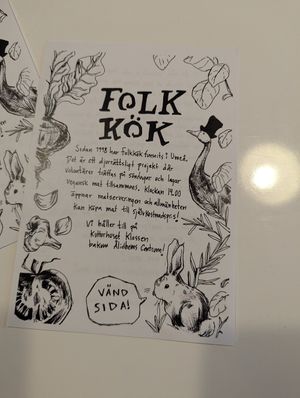 FOLK
KÖK
Sedan 1998 har folkkök funnits i Umeå.
Det är ett djurrättsligt projekt där
volontärer träffas på söndagar och lagar
vegansk mat tillsammans. Klockan 19.00
öppnar matserveringen och allmänheten
kan köpa mat till självkostnadspris!
Vi håller till på
Kulturhuset Klossen
bakom Ålidhems Centrum!
VÄND
SIDA!